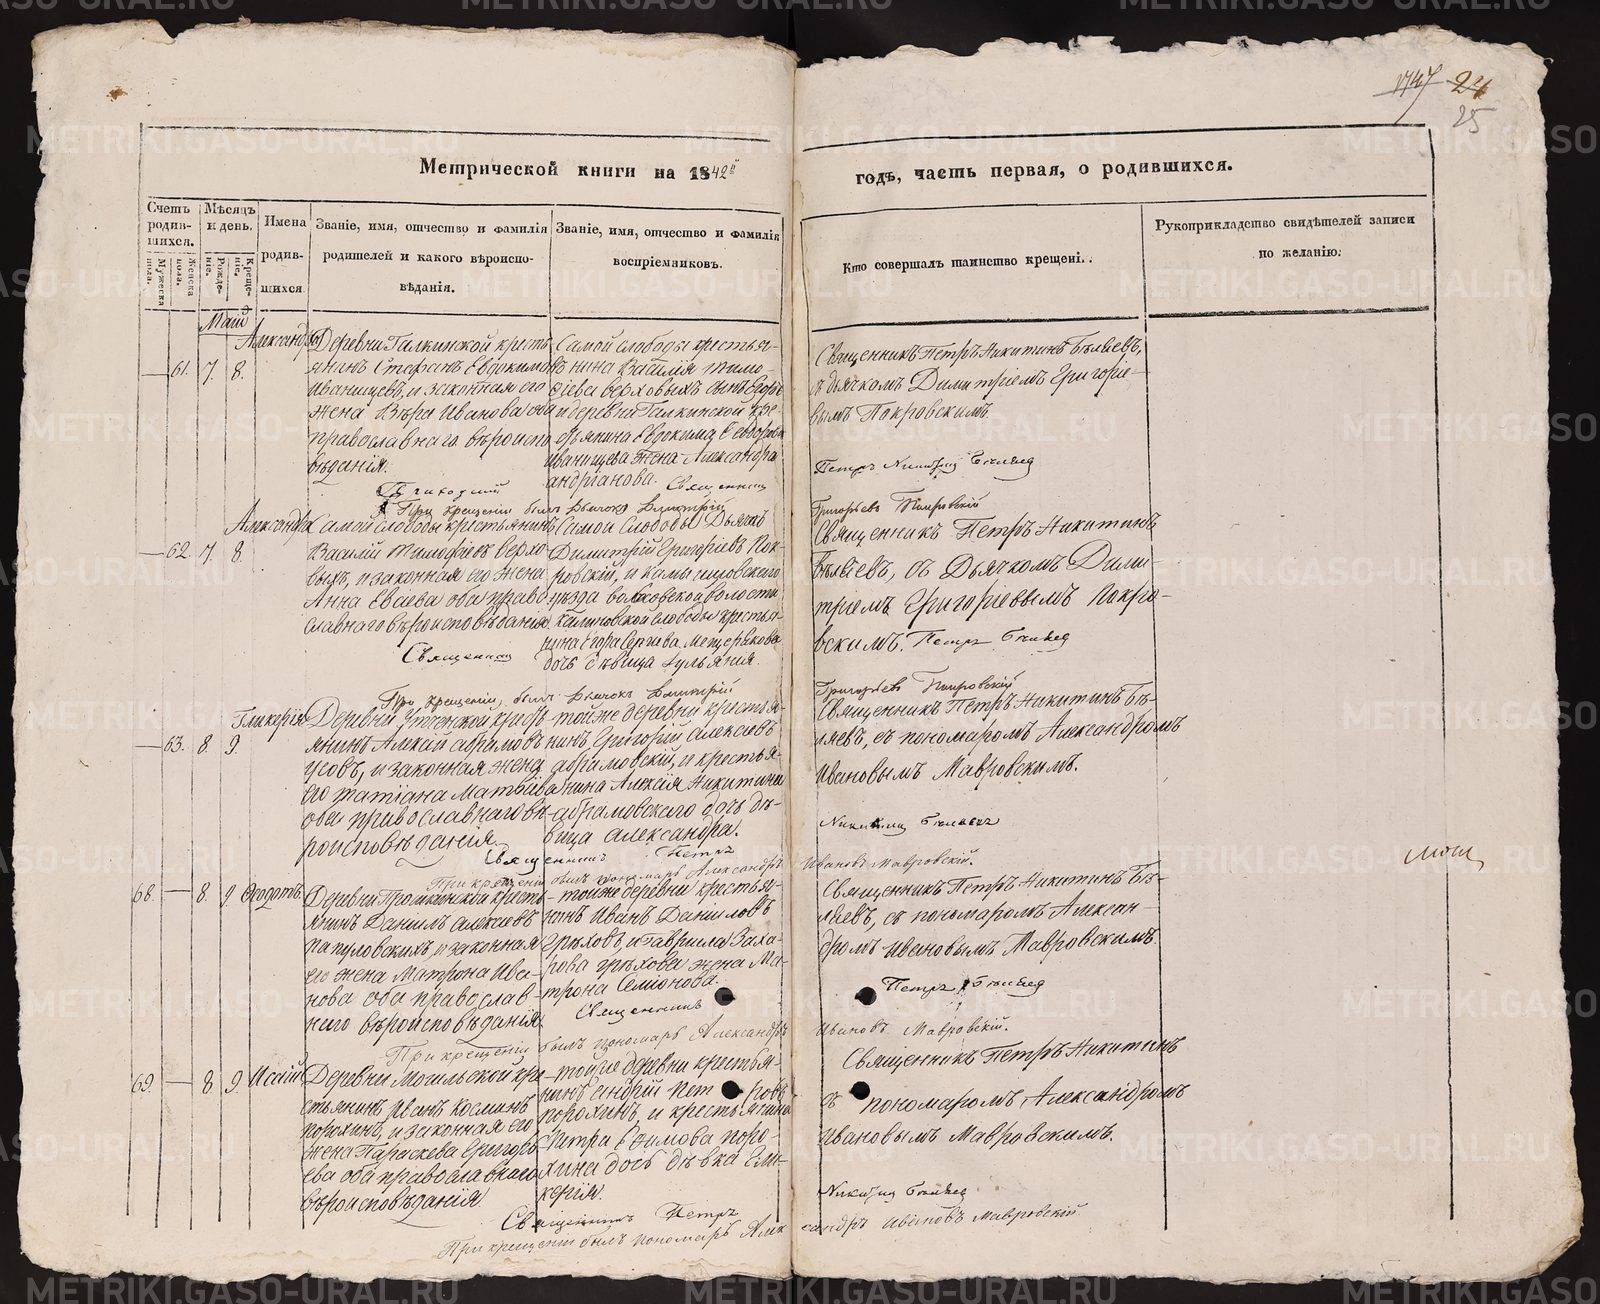 1747 24
25
Метрической книги на 1842й годъ, часть первая, о родившихся.
Счетъ родив-шихся.
Мужеска пола.
Женска пола.
Мѣсяцъ и день.
Рожде-ніе.
Креще-ніе.
Имена родив-шихся
Званіе, имя, отчество и фамилія родителей и какого вѣроиспо-вѣданія.
Званіе, имя, отчество и фамилія воспріемниковъ.
Кто совершалъ таинство крещені..
Рукоприкладство свидѣтелей записи по желанію.
Май
— 61. 7. 8.
Александра
Деревни Галкинской кресть
янинъ Стефанъ Евдокимовъ
Иванищевъ, и законная его
жена Вѣра Иванова оба
православнаго вѣроиспо
вѣданія.
Самой слободы крестья-
нина Василія Тимо-
фіева Верховыхъ сынъ Егоръ
и деревни Галкинской кре-
стьянина Евдокима
Иванищева жена Александра
Андріанова.
Священникъ Петръ Никитинъ Бѣляевъ,
съ дьячкомъ Димитріемъ Григоріе-
вымъ Покровскимъ.
Приходскій Священникъ Петръ Никитин Бѣляев
При крещеніи былъ Дьячокъ Димитрій Григорьевъ Покровскій
— 62. 7. 8.
Александра
Самой слободы крестьянинъ
Василій Тимофіевъ Верхо-
выхъ, и законная его жена
Анна Еваева оба право-
славнаго вѣроисповѣданія
Самой Слободы Дьячкъ
Димитрій Григоріевъ Пок-
ровскій, и Камышловскаго
уѣзда волковской волости
Калиновской слободы крестья-
нина Егора Сергіева Мещерякова
дочь дѣвица Іульянія.
Священникъ Петръ Никитинъ
Бѣляевъ, съ Дьячкомъ Дими-
тріемъ Григоріевымъ Покро-
вскимъ.
Священник Петръ Бѣляев
При крещеніи, былъ Дьячокъ Димитрій Григорьевъ Покровскій
— 63. 8. 9.
Гликерія
Деревни крестья-
янинъ Алексій Абрамовъ
Усовъ, и законная жена
его Татіана Матвіева
оба православнаго вѣ-
роисповѣданія.
тойже деревни крестья-
нинъ Григорій Алексіевъ
Абрамовскій, и крестья-
нина Алексія Никитина
Абрамовскаго дочь дѣ-
вица Александра.
Священникъ Петръ Никитинъ Бѣ-
ляевъ, съ пономаромъ Александромъ
Ивановымъ Мавровскимъ.
Священникъ Петръ Никитин Бѣляевъ
При крещеніи былъ пономарь Александръ Ивановъ Мавровскій.
68. — 8. 9.
Ѳеодотъ
Деревни Прошкинской кресть
янинъ Даніилъ Алексіевъ
Папуловскихъ, и законная
его жена Матрона Ива-
нова оба православ-
наго вѣроисповѣданія
тойже деревни крестья-
нинъ Иванъ Даніиловъ
Грѣховъ, и Гавріила Заха-
рова Грѣхова жена Ма-
трона Семіонова.
Священникъ Петръ Никитинъ Бѣ-
ляевъ, съ пономаромъ Алексан-
дромъ Ивановымъ Мавровскимъ
Священникъ Петръ Бѣляев
При крещеніи былъ пономарь Александръ Ивановъ Мавровскій.
69. — 8. 9.
Исаій
Деревни Могильской кре
стьянинъ Иванъ Косминъ
Порохинъ, и законная его
жена Параскева Григорь
ева оба православнаго
вѣроисповѣданія.
тойже деревни крестья-
нинъ Андрій Петровъ
Порохинъ, и крестьянина
Петра Ефимова Поро-
хина дочь дѣвка Гли-
керія.
Священникъ Петръ Никитинъ
съ пономаромъ Александромъ
Ивановымъ Мавровскимъ.
Священникъ Петръ Никитин Бѣляев
При крещеніи былъ пономарь Александръ Ивановъ Мавровскій
METRIKI.GASO-URAL.RU